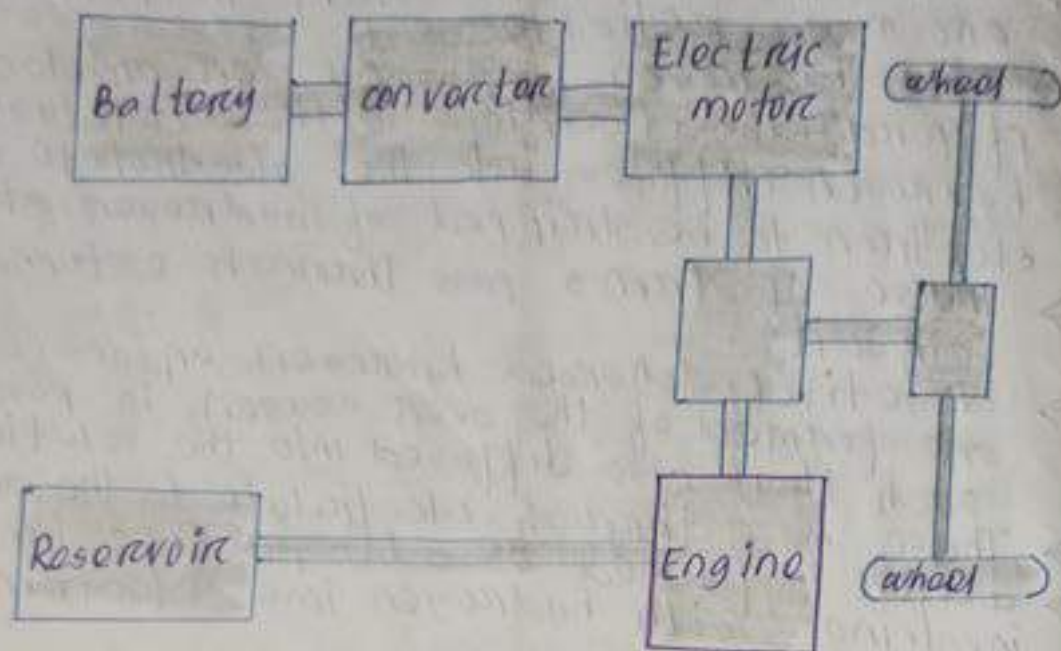 Baltery
convorctor
Electric
motore
wheel
Reservoire
Engine
wheel